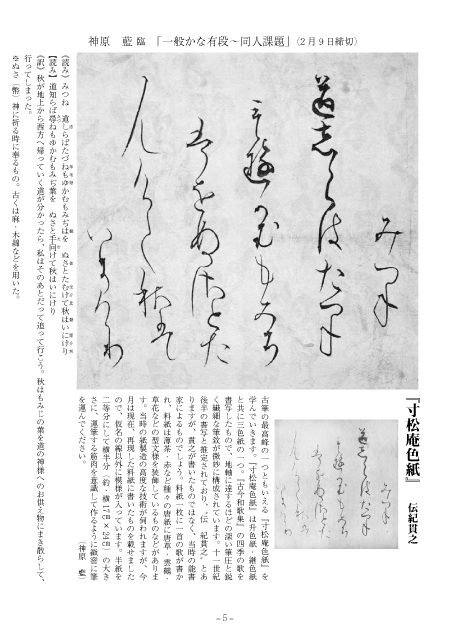 神原　藍 臨　「一般かな有段～同人課題」（２月９日締切）
『寸松庵色紙』　伝紀貫之
古筆の最高峰の一つともいえる『寸松庵色紙』を
学んでいきます。『寸松庵色紙』は升色紙・継色紙
と共に三色紙の一つ。『古今和歌集』の四季の歌を
書写したもので、地軸に達するほどの深い筆圧と鋭
く繊細な筆致が微妙に構成されています。十一世紀
後半の書写と推定されており、“伝　紀貫之”とあ
りますが、貫之が書いたものではなく、当時の能書
家によるものでしょう。料紙一枚に一首の歌が書か
れ、料紙は薄茶・赤など種々の唐紙に唐草・雲鶴・
草花などの型文様を装飾しているものなどがありま
す。当時の紙製造の高度な技術が伺われますが、今
月は現在、再現した料紙に書いたものを載せました
ので、仮名の線以外に模様が入っています。半紙を
二等分にして横半分（約・横17㎝×24㎝）の大き
さに、運筆する筋肉を意識して作るように緻密に筆
を運んでください。　（神原　藍）
《読み》みつね　道しらばたづねもゆかむもみぢばを　ぬさとたむけて秋はいにけり
【読み】道知らば尋ねもゆかむもみぢ葉を　ぬさと手向けて秋はいにけり
《訳》秋が地上から西方へ帰っていく道が分かったら、私はそのあとだって追って行こう。秋はもみじの葉を道の神様へのお供え物にまき散らして、
行ってしまった。
※ぬさ（幣）神に祈る時に奉るもの。古くは麻・木綿などを用いた。
－5－